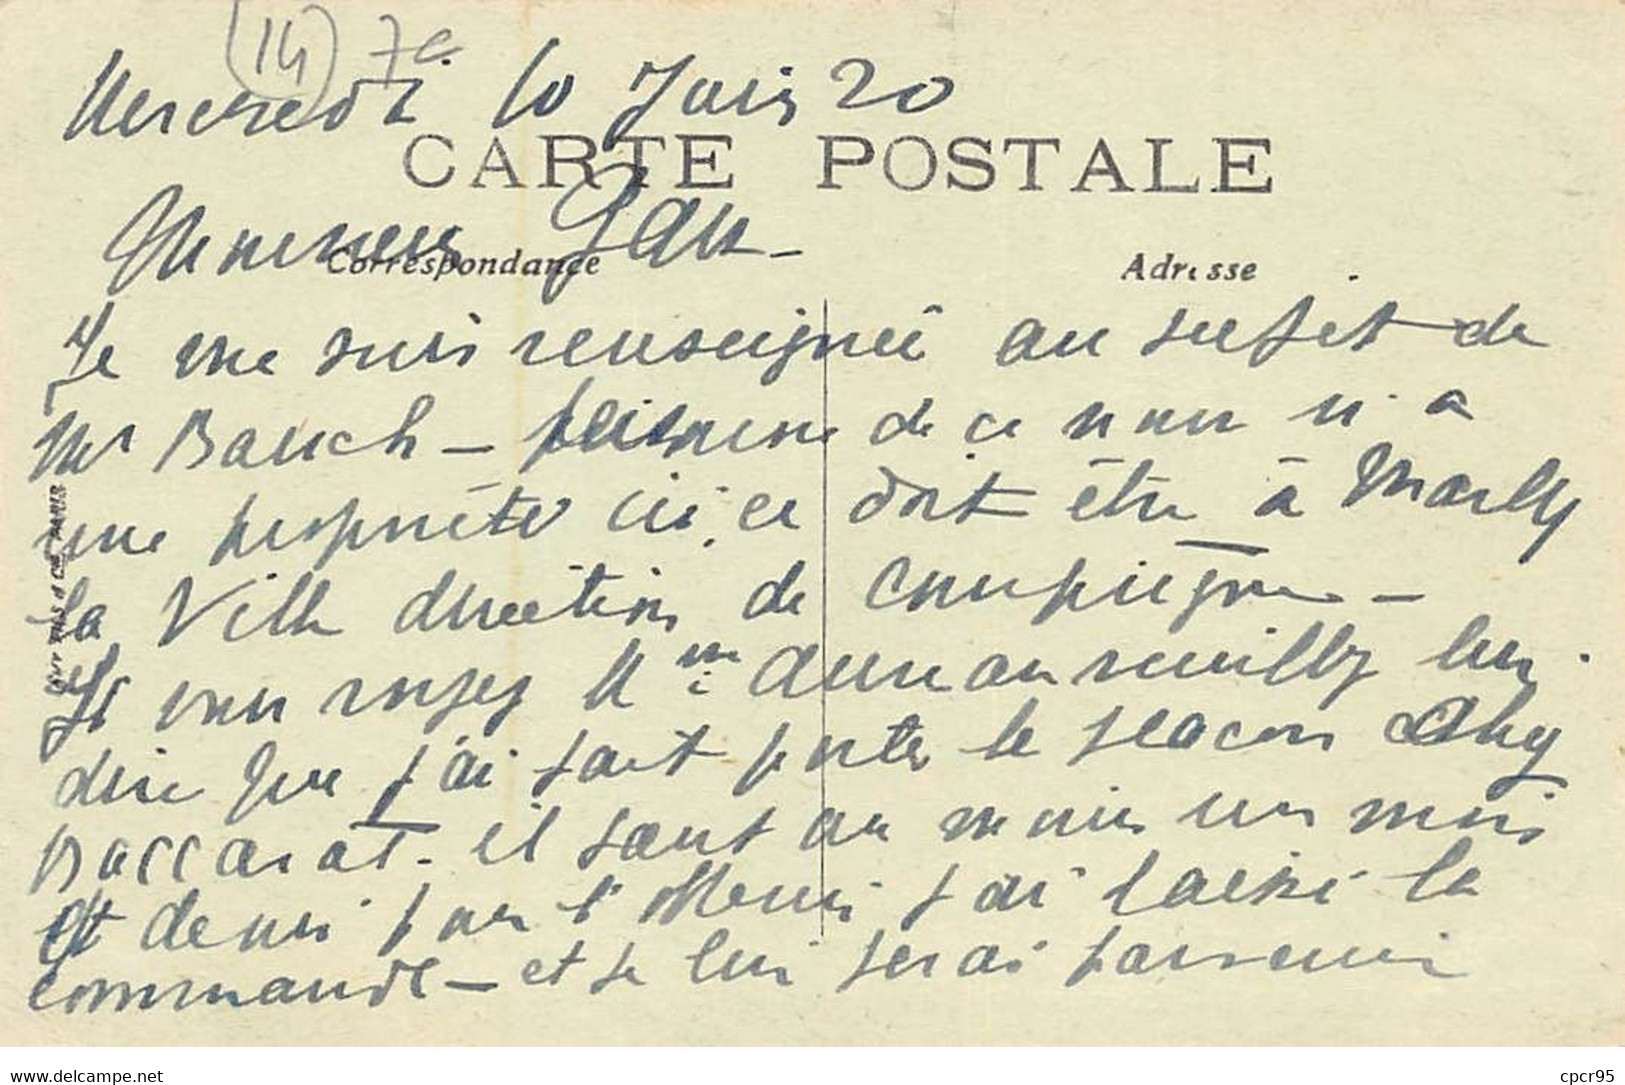 (14) 7e
Mercredi 10 Juin 20
CARTE POSTALE
Jean -
Correspondance
Adresse
Je me suis renseigné au sujet de
Mr Bauch - personne de ce nom n'a
une propriété ici, ce doit être à Marly
la Ville direction de Compiègne -
Si vous voyez Mme lui
dire que j'ai fait porter le flacon chez
Baccarat. il faut au moins un mois
et demi pour l'obtenir j'ai laissé la
commande - et je lui ferai parvenir
www.delcampe.net
cpcr95